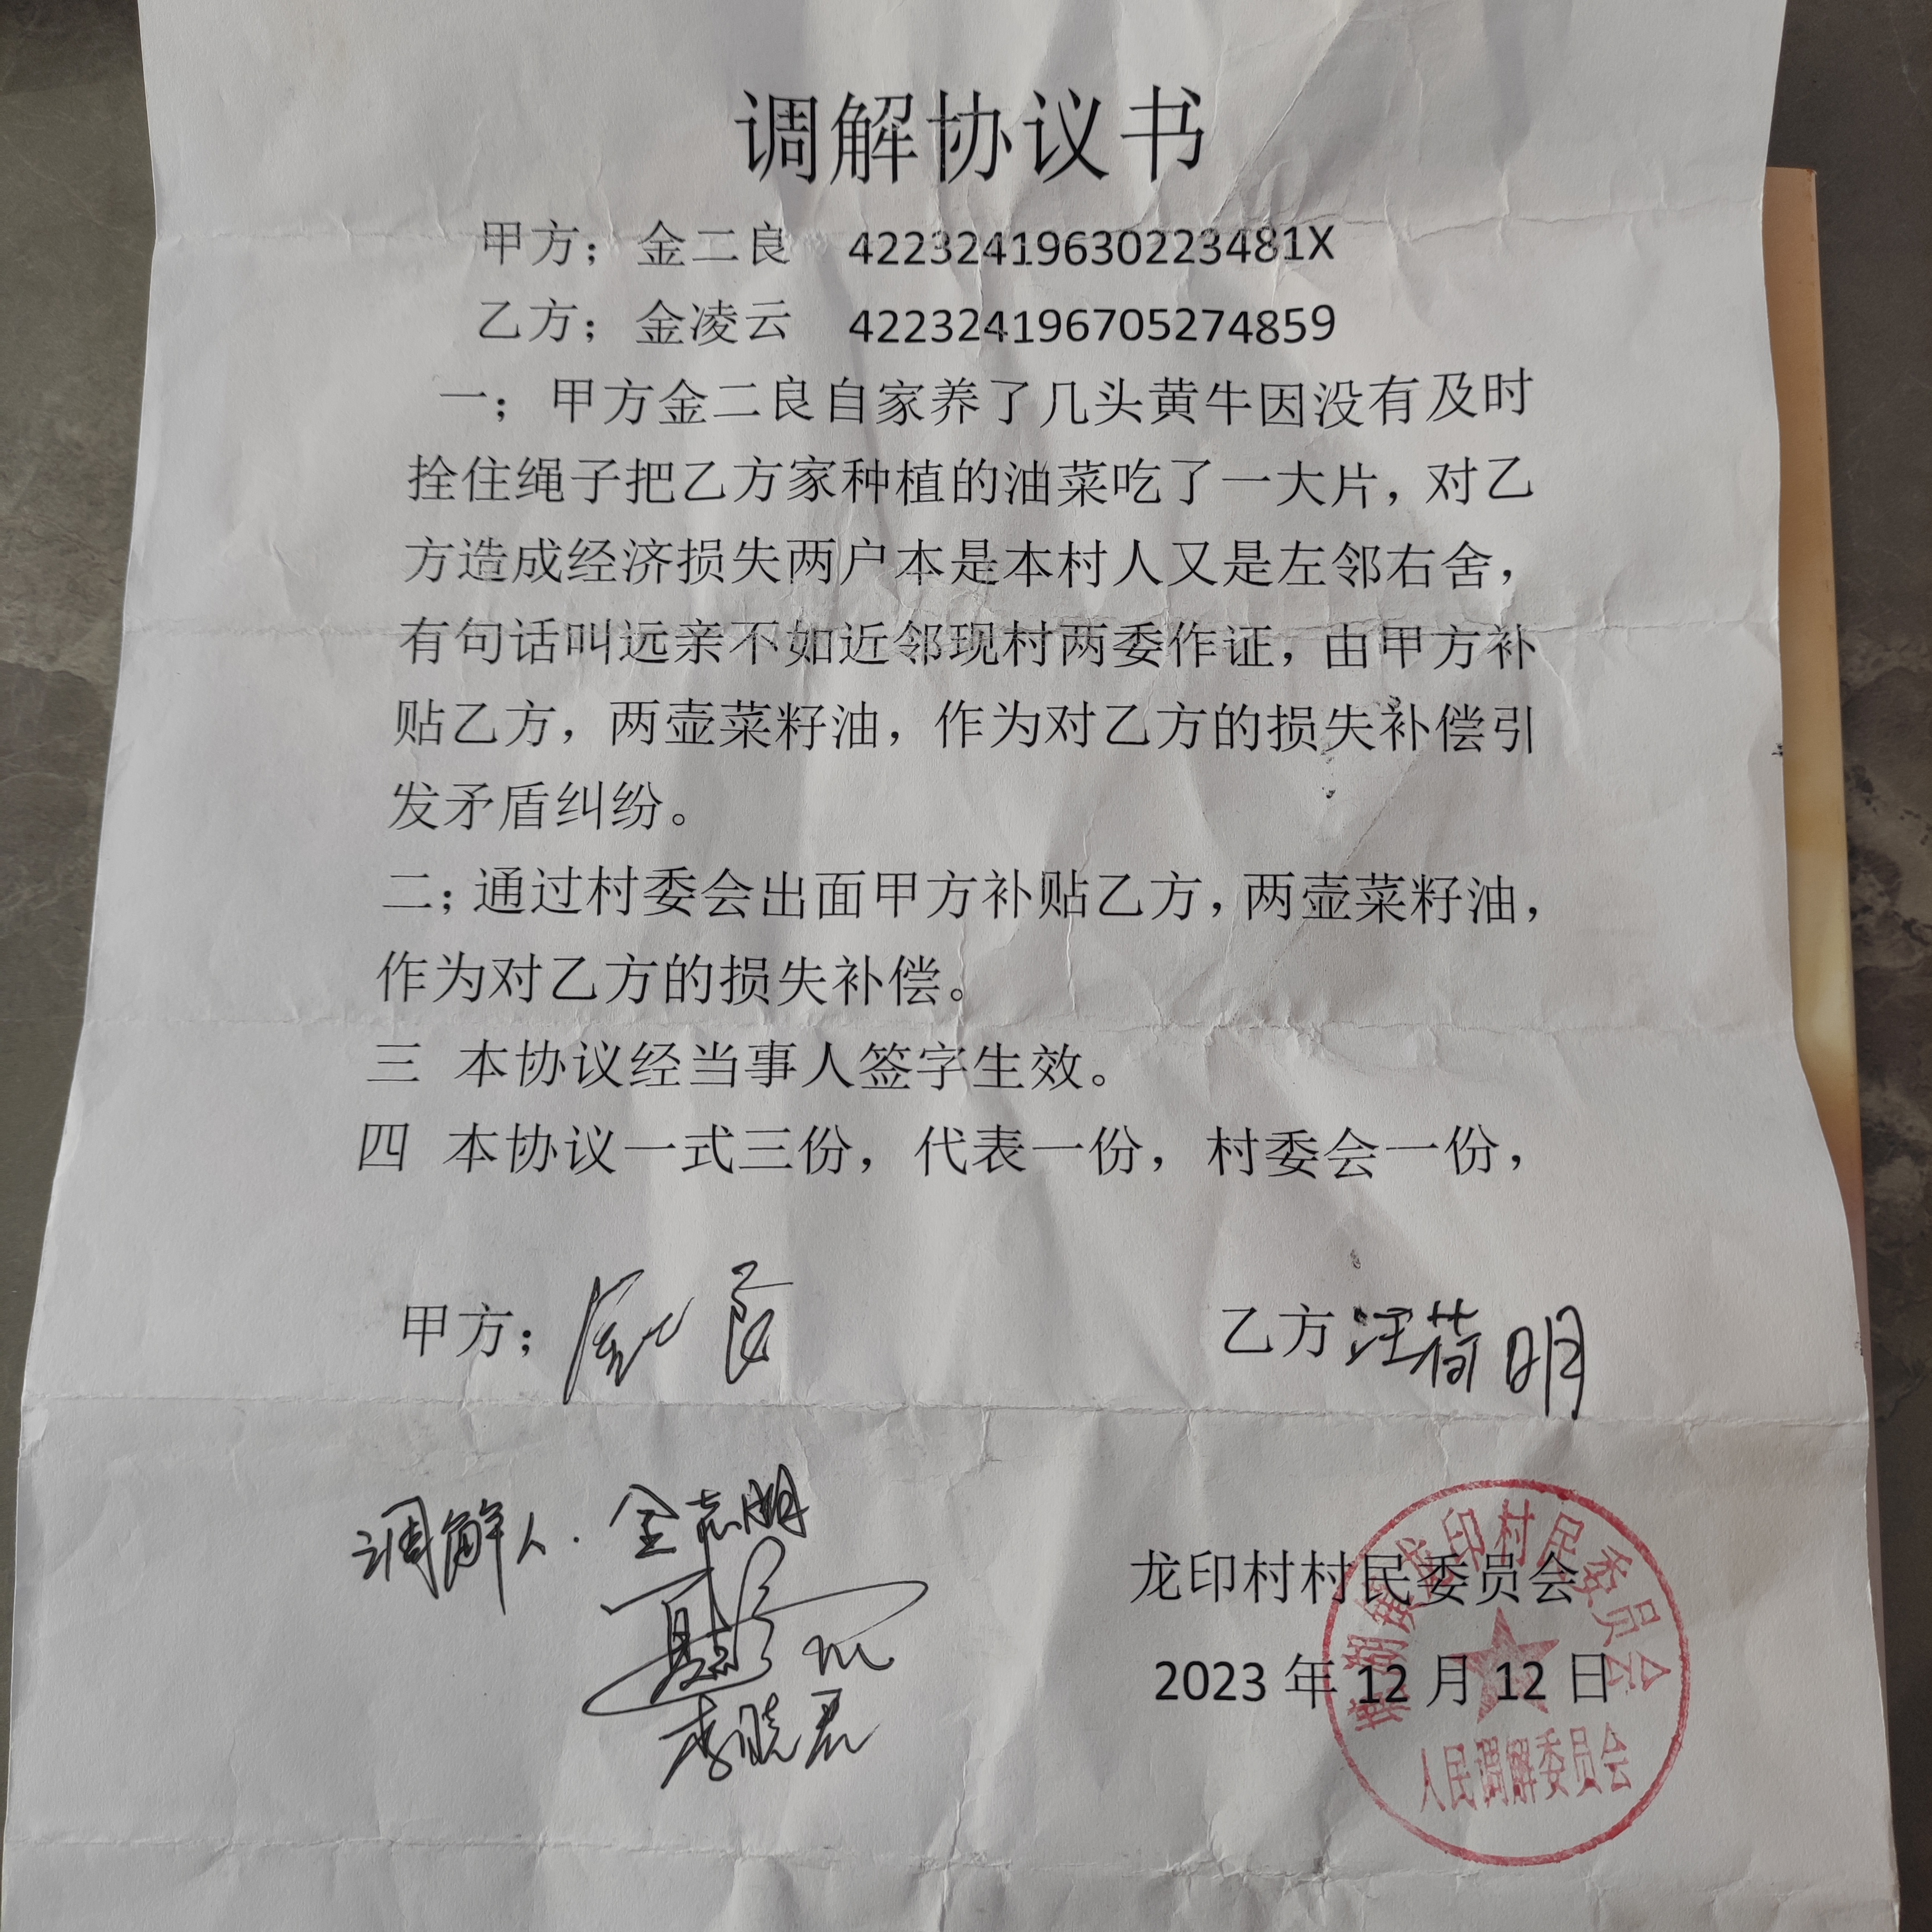 调解协议书
甲方；金二良 42232419630223481X
乙方；金凌云 422324196705274859
一；甲方金二良自家养了几头黄牛因没有及时
拴住绳子把乙方家种植的油菜吃了一大片，对乙
方造成经济损失两户本是本村人又是左邻右舍，
有句话叫远亲不如近邻现村两委作证，由甲方补
贴乙方，两壶菜籽油，作为对乙方的损失补偿引
发矛盾纠纷。
二；通过村委会出面甲方补贴乙方，两壶菜籽油，
作为对乙方的损失补偿。
三 本协议经当事人签字生效。
四 本协议一式三份，代表一份，村委会一份，
甲方； 乙方 汪荷明
调解人. 金志明
李晓君
龙印村村民委员会
2023 年 12 月 12 日
龙印村民委员会
人民调解委员会